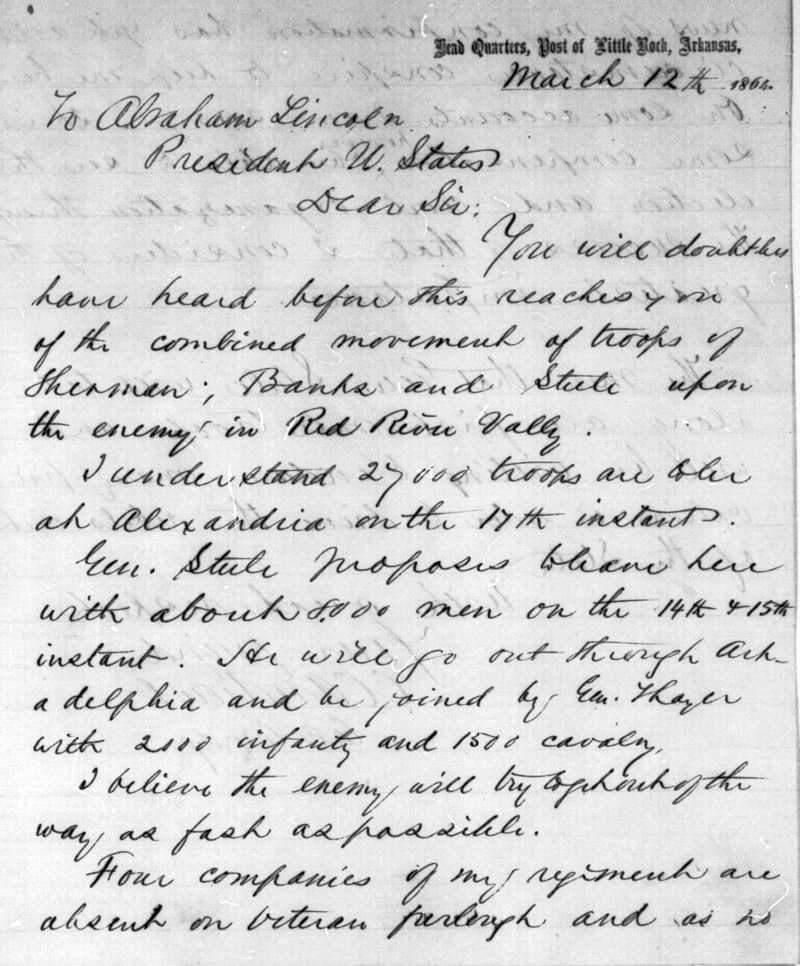 Head Quarters, Post of Little Rock, Arkansas,
March 12th 1864.
To Abraham Lincoln
President U. States
Dear Sir:
You will doubtless
have heard before this reaches you
of the combined movement of troops of
Sherman; Banks and Steele upon
the enemy in Red River Vally.
I understand 27000 troops are to be
at Alexandria on the 17th instant.
Gen. Steele proposes to leave here
with about 8000 men on the 14th & 15th
instant. He will go out through Ark-
adelphia and be joined by Gen. Thayer
with 2000 infanty and 1500 cavalry.
I believe the enemy will try to get out of the
way as fast as possible.
Four companies of my regiment are
absent on veteran furlough and as no